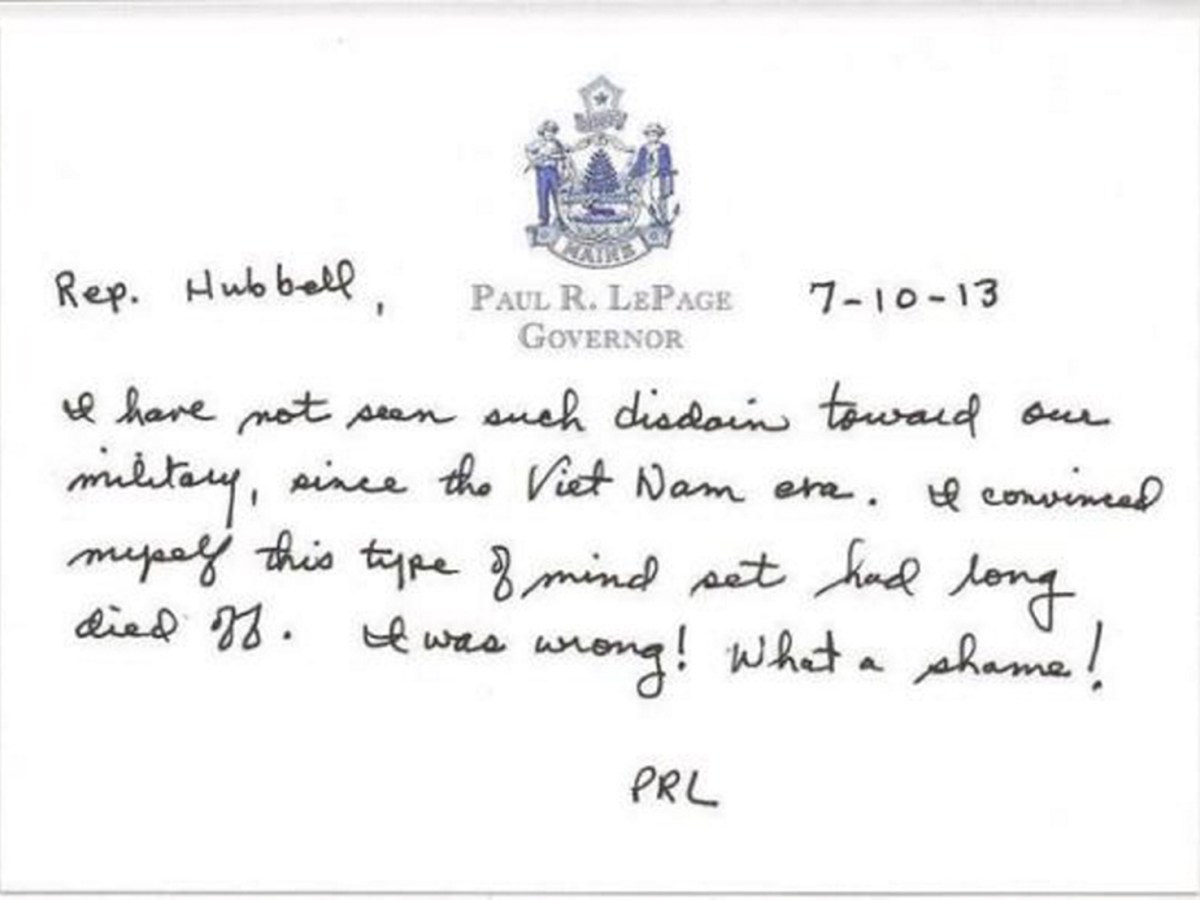 MAINE
Rep. Hubbell, PAUL R. LEPAGE 7-10-13
GOVERNOR
I have not seen such disdain toward our
military, since the Viet Nam era. I convinced
myself this type of mind set had long
died off. I was wrong! What a shame!
PRL